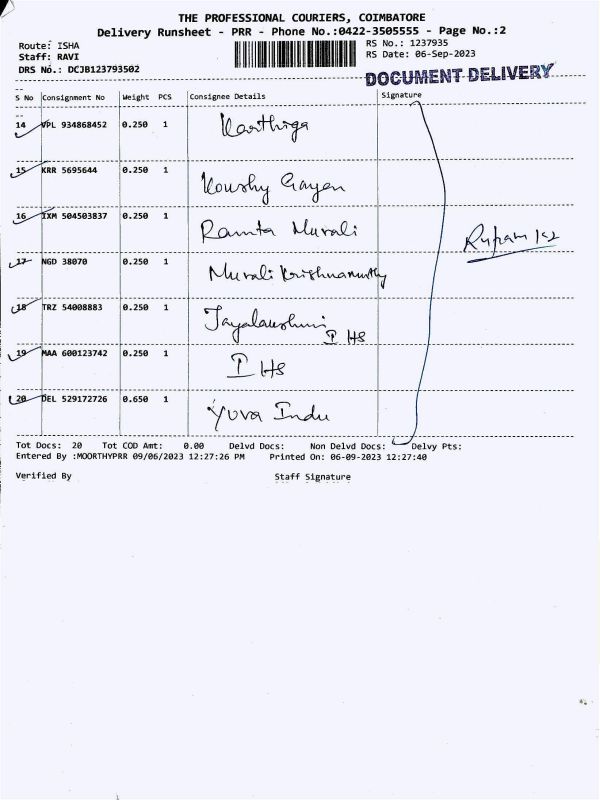 THE PROFESSIONAL COURIERS, COIMBATORE
Delivery Runsheet - PRR - Phone No.:0422-3505555 - Page No.:2
Route: ISHA
RS No.: 1237935
Staff: RAVI
RS Date: 06-Sep-2023
DRS No.: DCJB123793502
DOCUMENT DELIVERY
S No Consignment No Weight PCS Consignee Details Signature
14 VPL 934868452 0.250 1 Karthiga
15 KRR 5695644 0.250 1 Koushy Gayen
16 IXM 504503837 0.250 1 Ramta Murali
17 NGD 38070 0.250 1 Murali Krishnamurthy
18 TRZ 54008883 0.250 1 Jayalakshmi I HS
19 MAA 600123742 0.250 1 I HS
20 DEL 529172726 0.650 1 Yuva Indu
Tot Docs: 20 Tot COD Amt: 0.00 Delvd Docs: Non Delvd Docs: Delvy Pts:
Entered By :MOORTHYPRR 09/06/2023 12:27:26 PM Printed On: 06-09-2023 12:27:40
Verified By Staff Signature